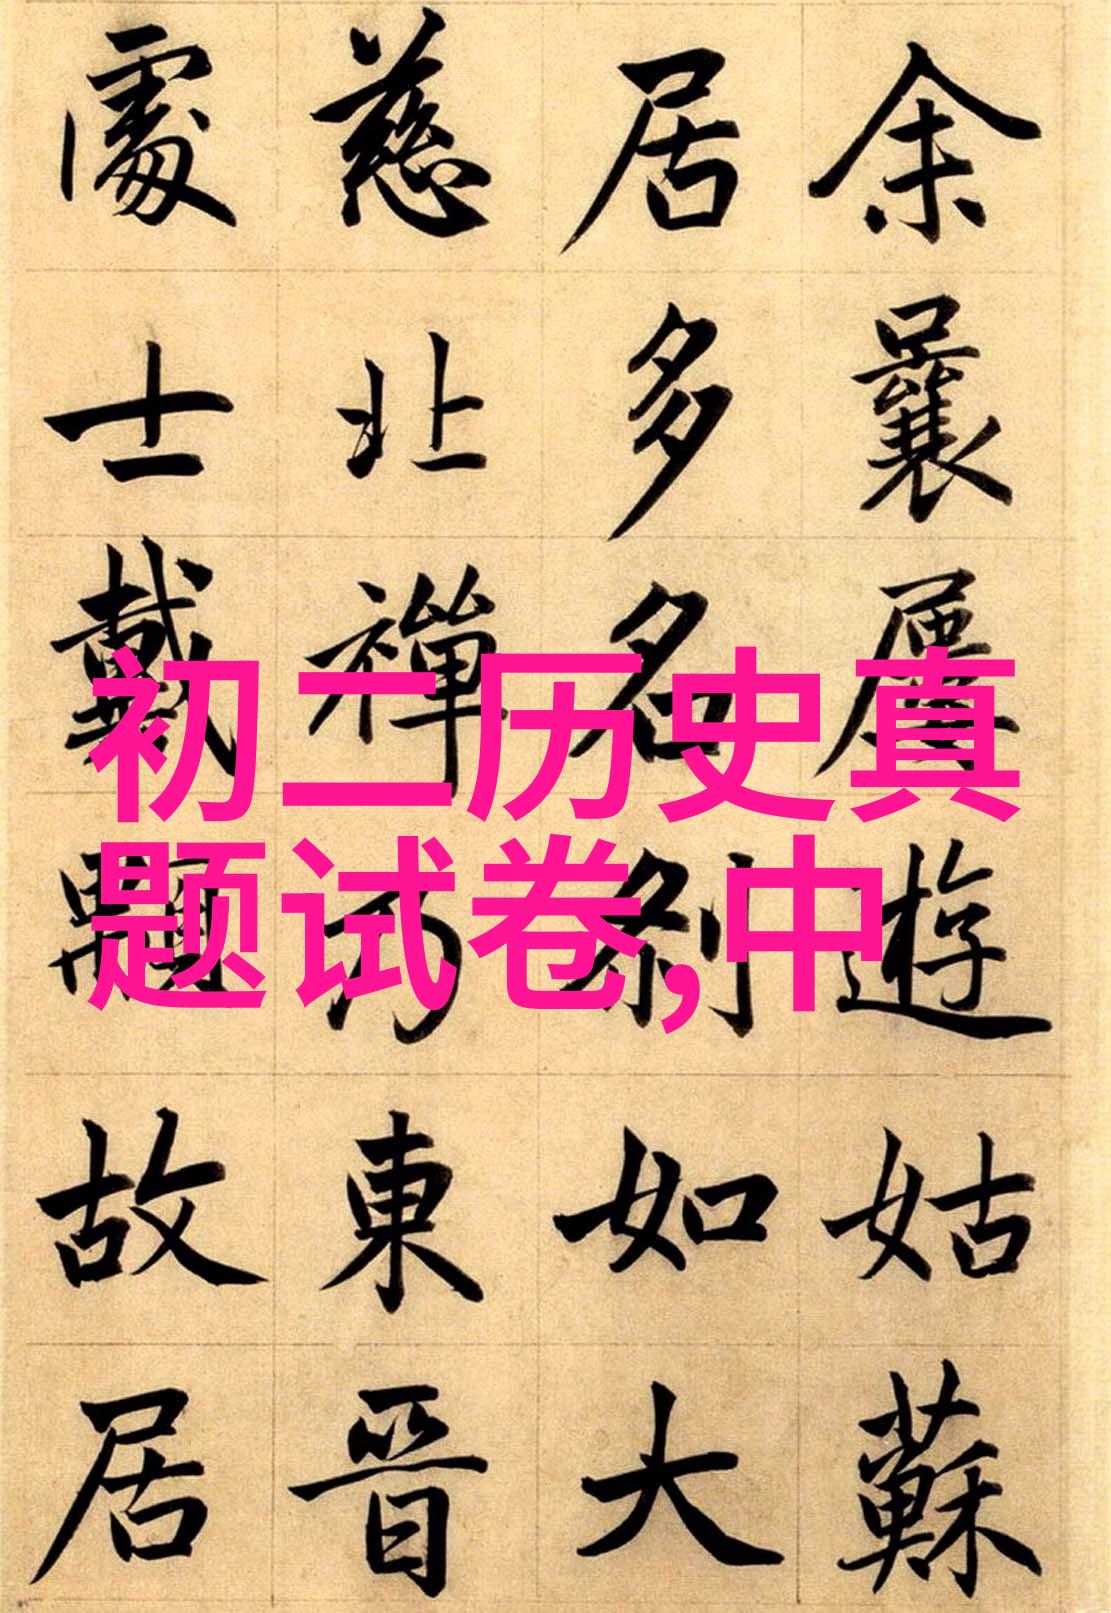 余曩屢遊姑蘇
居多名剎如大
慈北禪乃東晉
處士戴顒故居
初二历史真
题试卷,中